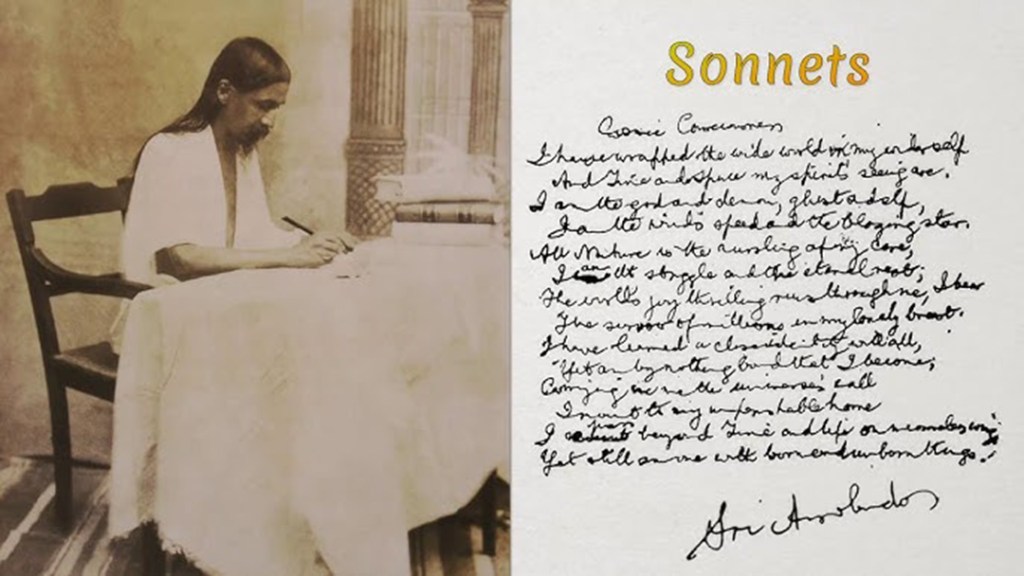 Sonnets
Cosmic Consciousness
I have wrapped the wide world in my wider self
And Time and Space my spirit's seeing are.
I am the god and demon, ghost and elf,
I am the wind's speed and the blazing star.
All Nature is the nursling of my care,
I am its struggle and the eternal rest;
The world's joy thrilling runs through me, I bear
The sorrow of millions in my lonely breast.
I have learned a close identity with all,
Yet am by nothing bound that I become;
Carrying in me the universe's call
I mount to my imperishable home
I pass beyond Time and life on measureless wings
Yet still am one with born and unborn things.
Sri Aurobindo